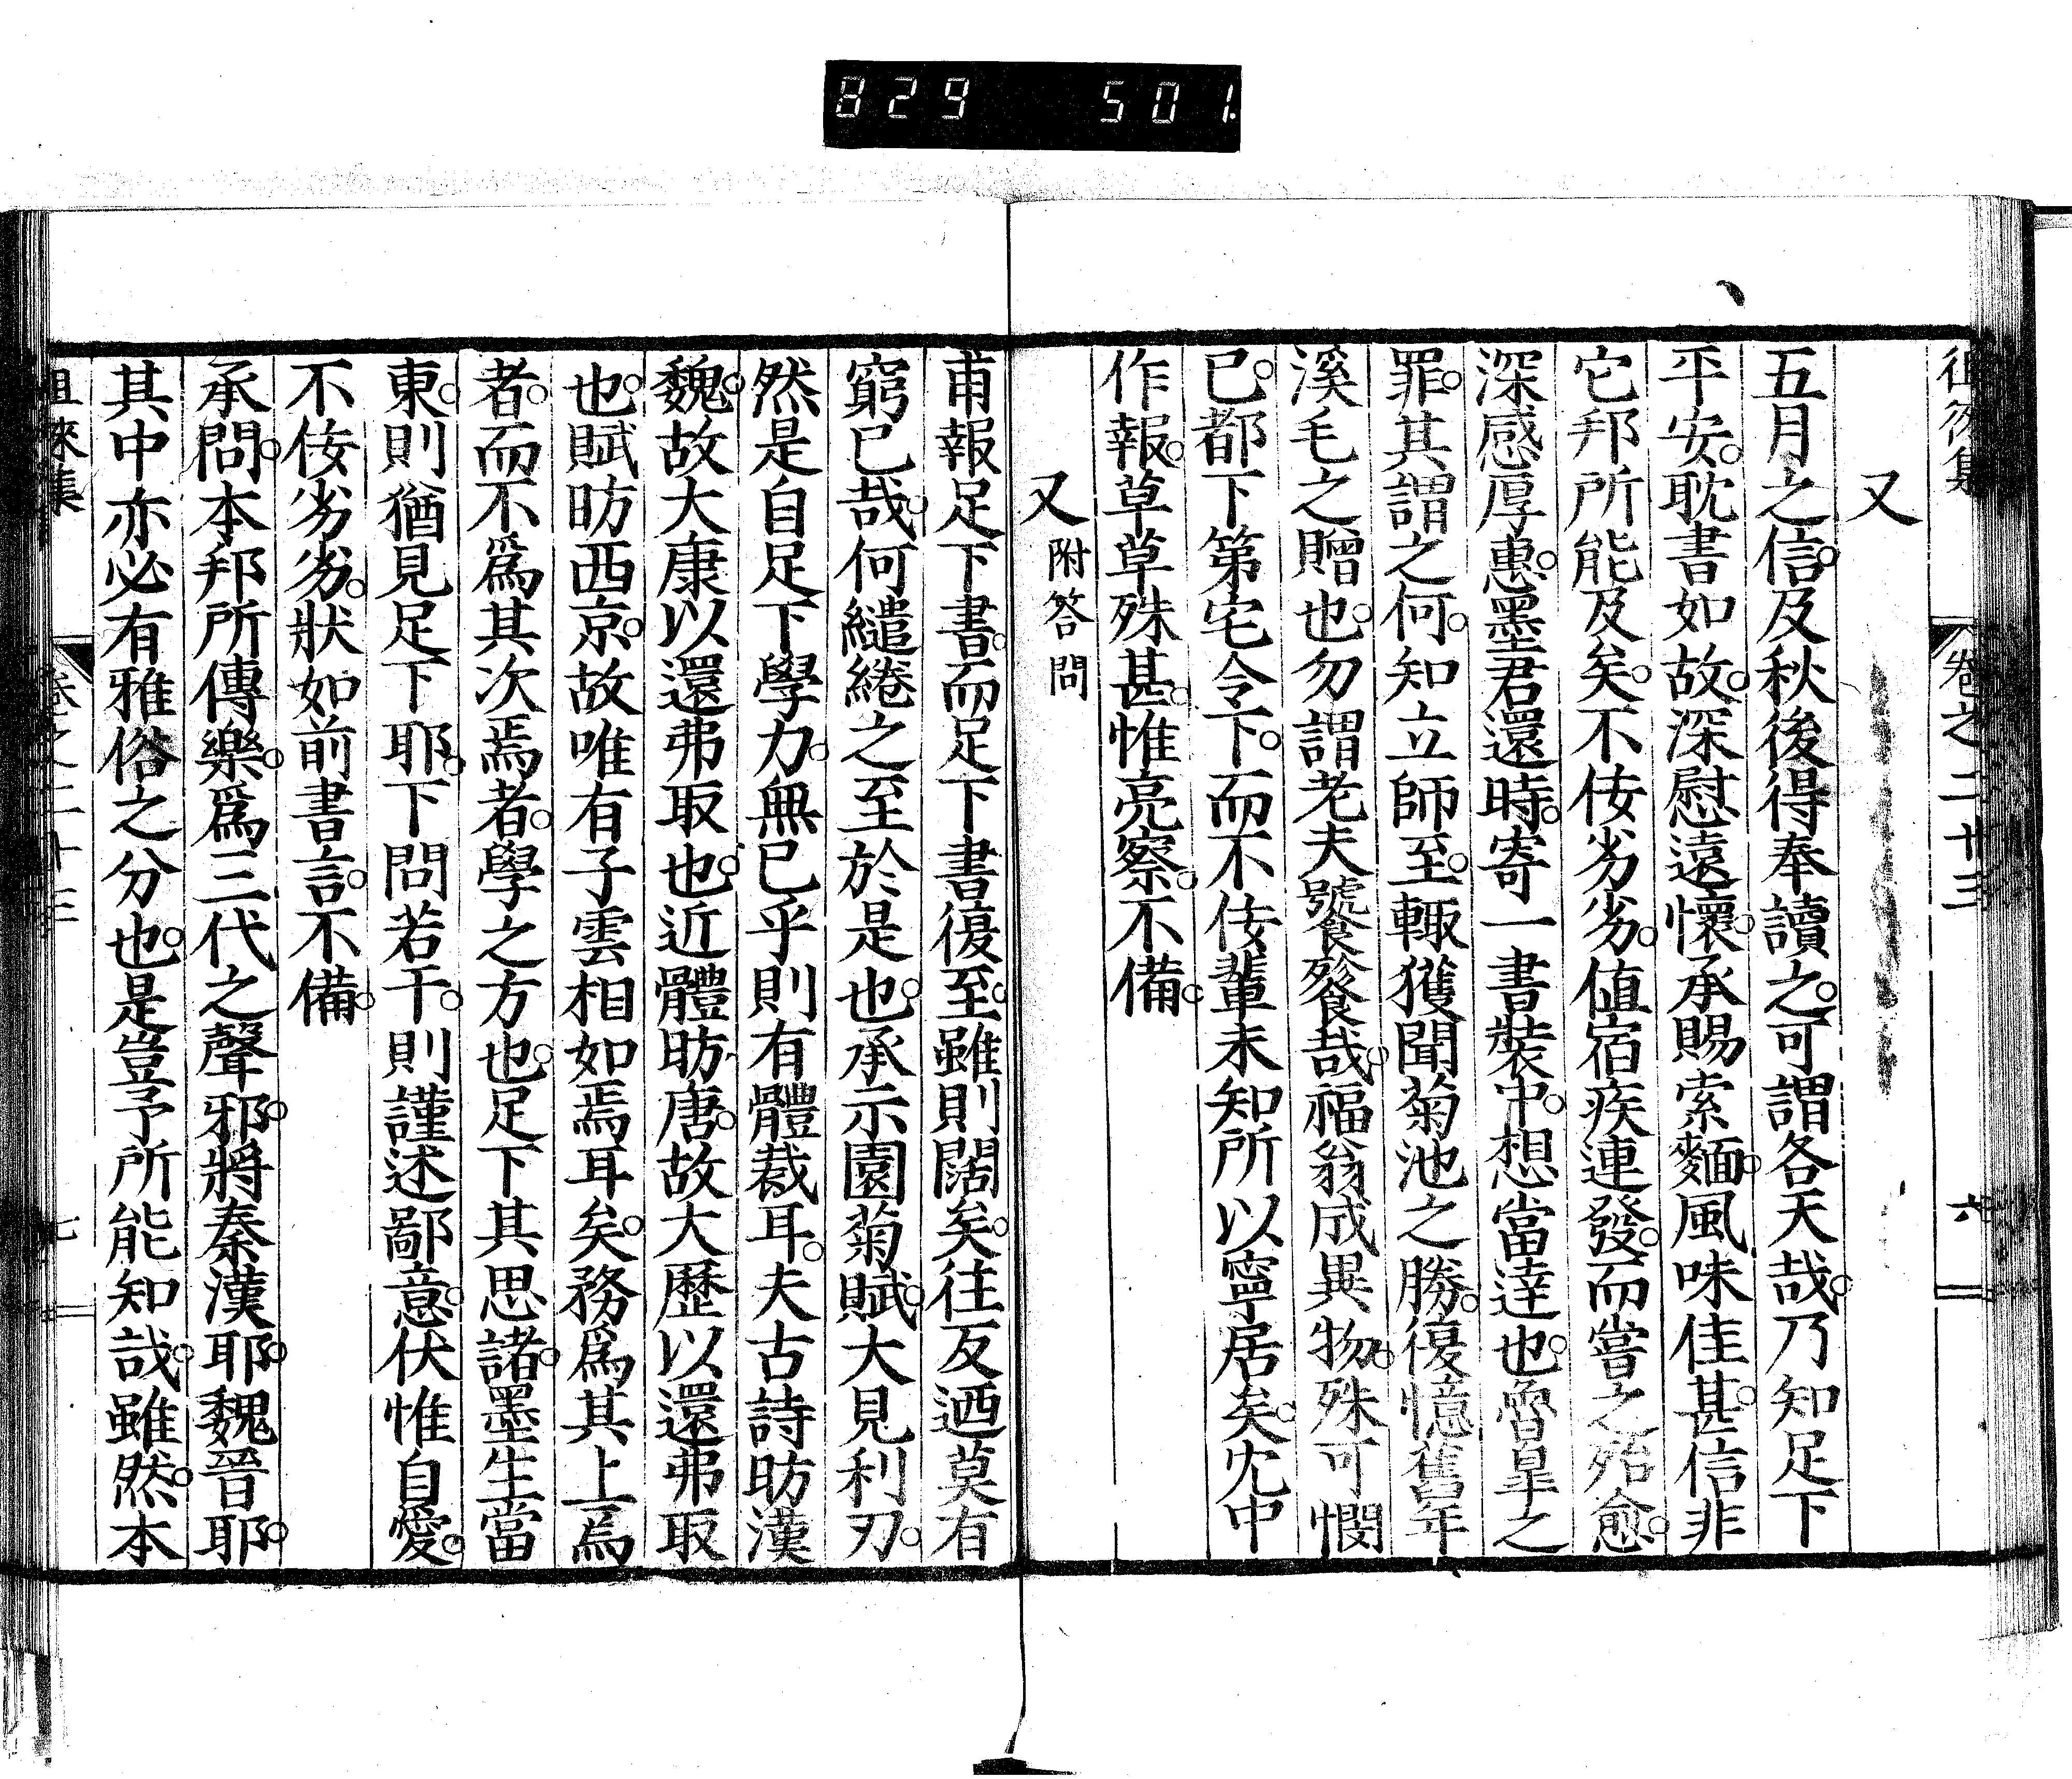 829 501.
徂徠集 卷之二十三 六
又
五月之信。及秋後得奉讀之。可謂各天哉。乃知足下
平安。耽書如故。深慰遠懷。承賜索麵。風味佳甚。信非
它邦所能及矣。不佞劣劣。值宿疾連發。而嘗之殆愈。
深感厚惠。墨君還時。寄一書裝中。想當達也。魯皐之
罪。其謂之何。知立師至。輙獲聞菊池之勝。復憶舊年
溪毛之贈也。勿謂老夫號饕餮哉。福翁成異物。殊可憫
已。都下第宅令下。而不佞輩未知所以寧居矣。冗中
作報。草草殊甚。惟亮察。不備。
又 附答問
甫報足下書。而足下書復至。雖則闊矣。往反迺莫有
窮已哉。何繾綣之至於是也。承示園菊賦。大見利刃。
然是自足下學力。無已乎則有體裁耳。夫古詩昉漢
魏。故大康以還弗取也。近體昉唐。故大歷以還弗取
也。賦昉西京。故唯有子雲相如焉耳矣。務爲其上焉
者。而不爲其次焉者。學之方也。足下其思諸。墨生當
東。則猶見足下耶。下問若干。則謹述鄙意。伏惟自愛。
不佞劣劣。狀如前書言。不備。
承問。本邦所傳樂。爲三代之聲邪。將秦漢耶。魏晉耶。
其中亦必有雅俗之分也。是豈予所能知哉。雖然。本
徂徠集 卷之二十三 七